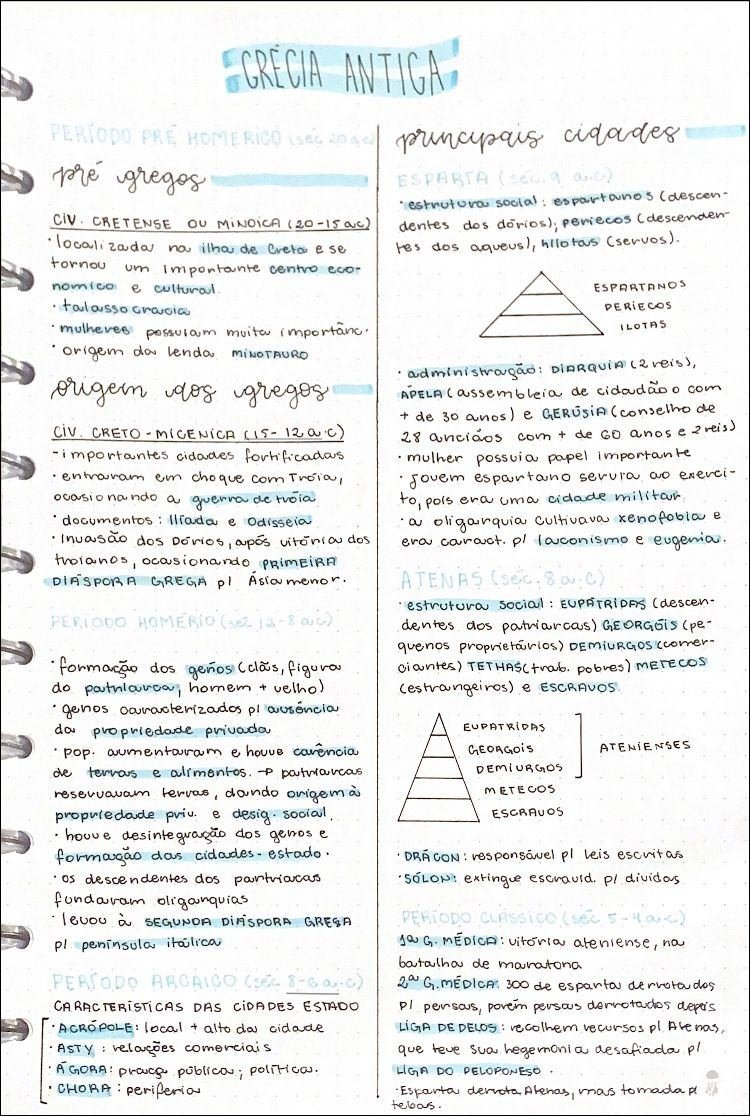 GRÉCIA ANTIGA
PERÍODO PRÉ HOMÉRICO (séc 20 a.c)
pré gregos
CIV. CRETENSE OU MINOICA (20-15 a.c)
·localizada na ilha de Creta e se
tornou um importante centro eco-
nomico e cultural.
·talassocracia
·mulheres possuiam muita importânc.
·origem da lenda MINOTAURO
origem dos gregos
CIV. CRETO-MICENICA (15-12 a.c)
-importantes cidades fortificadas
·entraram em choque com Tróia,
ocasionando a guerra de tróia
·documentos: Ilíada e Odisseia
·Invasão dos Dórios, após vitória dos
troianos, ocasionando PRIMEIRA
DIÁSPORA GREGA p/ Ásia menor.
PERÍODO HOMÉRIO (séc 12-8 a.c)
·formação dos genos (clãs, figura
do patriarca, homem + velho)
·genos caracterizados p/ ausência
da propriedade privada
·pop. aumentaram e houve carência
de terras e alimentos. → patriarcas
reservavam terras, dando origem à
propriedade priv. e desig. social.
·houve desintegração dos genos e
formação das cidades-estado.
·os descendentes dos partriacas
fundaram oligarquias
·levou à SEGUNDA DIÁSPORA GREGA
p/ península itálica
PERÍODO ARCAICO (séc 8-6 a.c)
CARACTERÍSTICAS DAS CIDADES ESTADO
·ACRÓPOLE: local + alto da cidade
·ASTY: relações comerciais
·ÁGORA: praça pública; política.
·CHORA: periferia
principais cidades
ESPARTA (séc. 9 a.c)
·estrutura social: espartanos (descen-
dentes dos dórios); periecos (descenden-
tes dos aqueus), hilotas (servos).
ESPARTANOS
PERIECOS
ILOTAS
·administração: DIARQUIA (2 reis),
ÁPELA (assembleia de cidadão o com
+ de 30 anos) e GERÚSIA (conselho de
28 anciãos com + de 60 anos e 2 reis)
·mulher possuia papel importante
·jovem espartano servira ao exerci-
to, pois era uma cidade militar.
·a oligarquia cultivava xenofobia e
era caract. p/ laconismo e eugenia.
ATENAS (séc. 8 a.c)
·estrutura social: EUPÁTRIDAS (descen-
dentes dos patriarcas) GEORGÓIS (pe-
quenos proprietários) DEMIURGOS (comer-
ciantes) TETHAS (trab. pobres) METECOS
(estrangeiros) e ESCRAVOS.
EUPATRIDAS
GEORGOIS
DEMIURGOS
ATENIENSES
METECOS
ESCRAVOS
·DRÁCON: responsável p/ leis escritas
·SÓLON: extingue escravid. p/ dívidas
PERÍODO CLÁSSICO (séc 5-4 a.c)
1ª G. MÉDICA: vitória ateniense, na
batalha de maratona
2ª G. MÉDICA: 300 de esparta derrotados
p/ persas, porém persas derrotados depois
LIGA DE DELOS: recolhem recursos p/ Atenas,
que teve sua hegemonia desafiada p/
LIGA DO PELOPONESO.
·Esparta derrota Atenas, mas tomada p/
tebas.